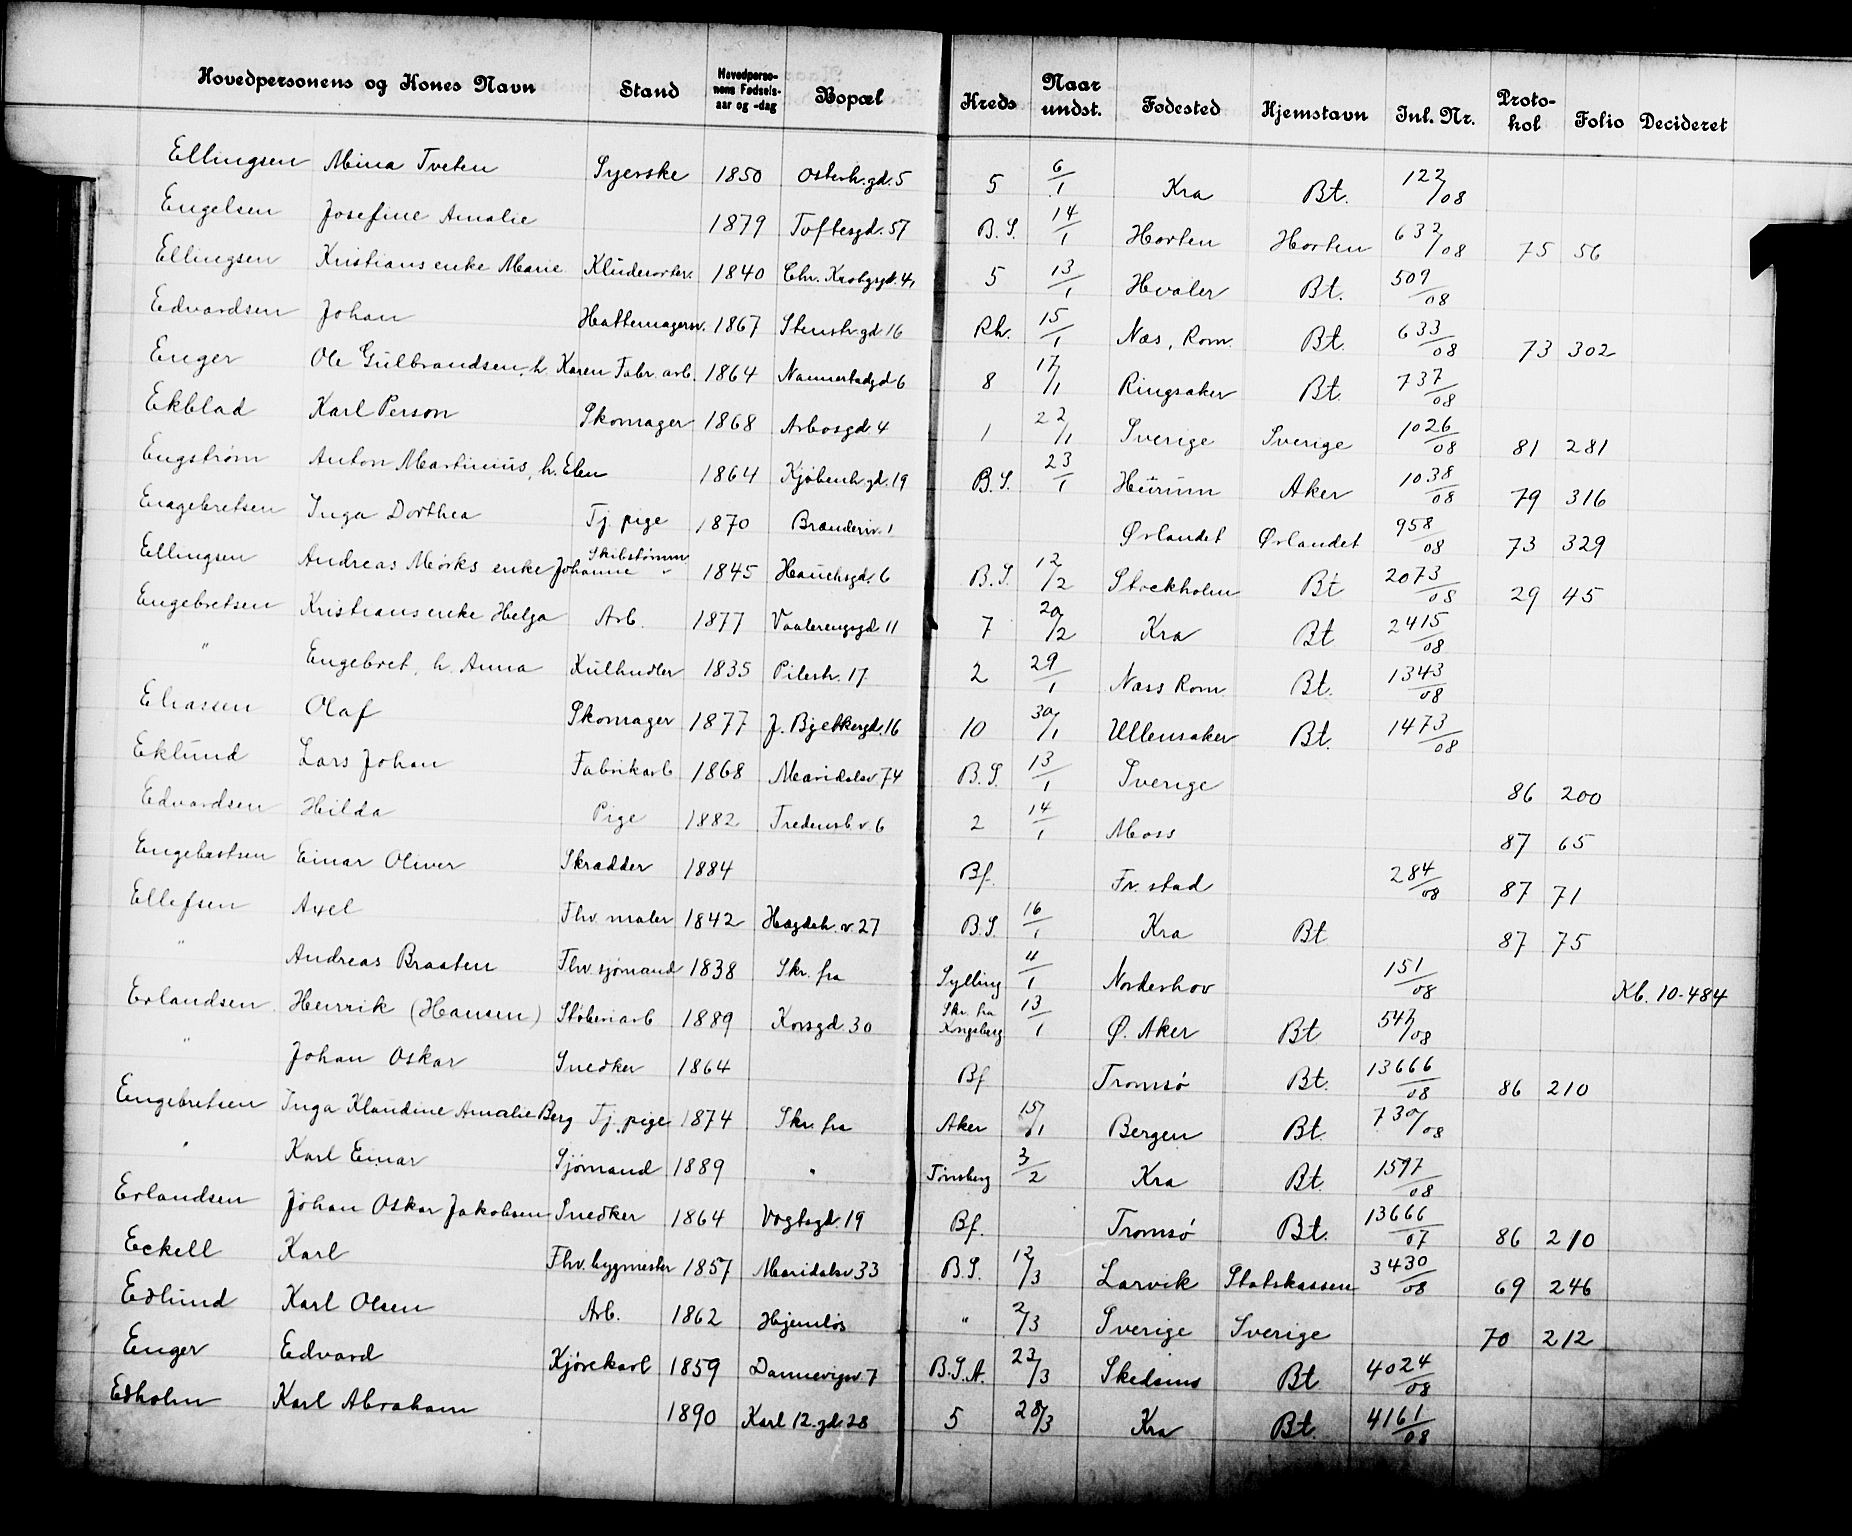 Hovedpersonens og Kones Navn Stand Hovedperso-nens Fødsels-aar og -dag Bopæl Kreds Naar undst. Fødested Hjemstavn Inl. Nr. Proto-kol Folio Decideret
Ellingsen Mina Tveten Syerske 1850 Osterh.gd. 5 5 6/1 Kra Bt. 122/08
Engelsen Josefine Amalie 1879 Toftesgd. 57 B.S. 14/1 Horten Horten 632/08 75 56
Ellingsen Kristians enke Marie 1840 Chr. Krohgsgd. 41 5 13/1 Hvaler Bt. 509/08
Edvardsen Johan Hattemagersv. 1867 Stensb.gd 16 Rh. 15/1 Næs, Rom. Bt. 633/08 73 302
Enger Ole Gulbrandsen, h. Karen Fabr. arb. 1864 Nannestadgd 6 8 17/1 Ringsaker Bt. 737/08
Ekblad Karl Person Skomager 1868 Arbosgd. 4 1 22/1 Sverige Sverige 1026/08 81 281
Engstrøm Anton Martinius, h. Elen 1864 Kjøbenh.gd. 19 B.S. 23/1 Hurum Aker 1038/08 79 316
Engebretsen Inga Dorthea Tj. pige 1870 Branderiv. 1 Ørlandet Ørlandet 958/08 73 329
Ellingsen Andreas Mørks enke Johanne Skibstømm 1845 Hauchsgd. 6 B.S. 12/2 Stockholm Bt 2073/08 29 45
Engebretsen Kristians enke Helga Arb. 1877 Vaalerengsgd 11 7 20/2 Kra Bt 2415/08
" Engebret, h. Anna Kulhndler 1835 Pilestr. 17 2 29/1 Næss Rom. Bt. 1343/08
Eliassen Olaf Skomager 1877 J. Bjelkesgd. 16 10 30/1 Ullensaker Bt. 1473/08
Eklund Lars Johan Fabrikarb 1868 Maridalsv 74 B.S. 13/1 Sverige 86 200
Edvardsen Hilda Pige 1882 Fredensb v 6 2 14/1 Moss 87 65
Engebretsen Einar Oliver Skrædder 1884 Bf. Fr. stad 284/08 87 71
Ellefsen Axel Fhv. maler 1842 Hægdeh. v. 27 B.S. 16/1 Kra Bt 87 75
" Andreas Braaten Fhv. sjømand 1838 Skr. fra Sylling 4/1 Norderhov 151/08 Kb. 10-484
Erlandsen Henrik (Hansen) Støberiarb 1889 Korsgd. 30 Skr. fra Kongsberg 13/1 Ø. Aker Bt 547/08
" Johan Oskar Snedker 1864 Bf Tromsø Bt. 13666/08 86 210
Engebretsen Inga Klaudine Amalie Berg Tj. pige 1874 Skr. fra Aker 15/1 Bergen Bt. 730/08
" Karl Einar Sjømand 1889 " Tønsberg 3/2 Kra Bt. 1597/08
Erlandsen Johan Oskar Jakobsen Snedker 1864 Vogtsgd. 19 Bf. Tromsø Bt. 13666/07 86 210
Eckell Karl Fhv. bygmester 1857 Maridalsv 33 B.S. 12/3 Larvik Statskassen 3430/08 69 246
Edlund Karl Olsen Arb. 1862 Hjemløs " 2/3 Sverige Sverige 70 212
Enger Edvard Kjørekarl 1859 Dannevigsv 7 B.S.A. 23/3 Skedsmo Bt 4024/08
Edholm Karl Abraham 1890 Karl 12. gd 28 5 28/3 Kra Bt. 4161/08